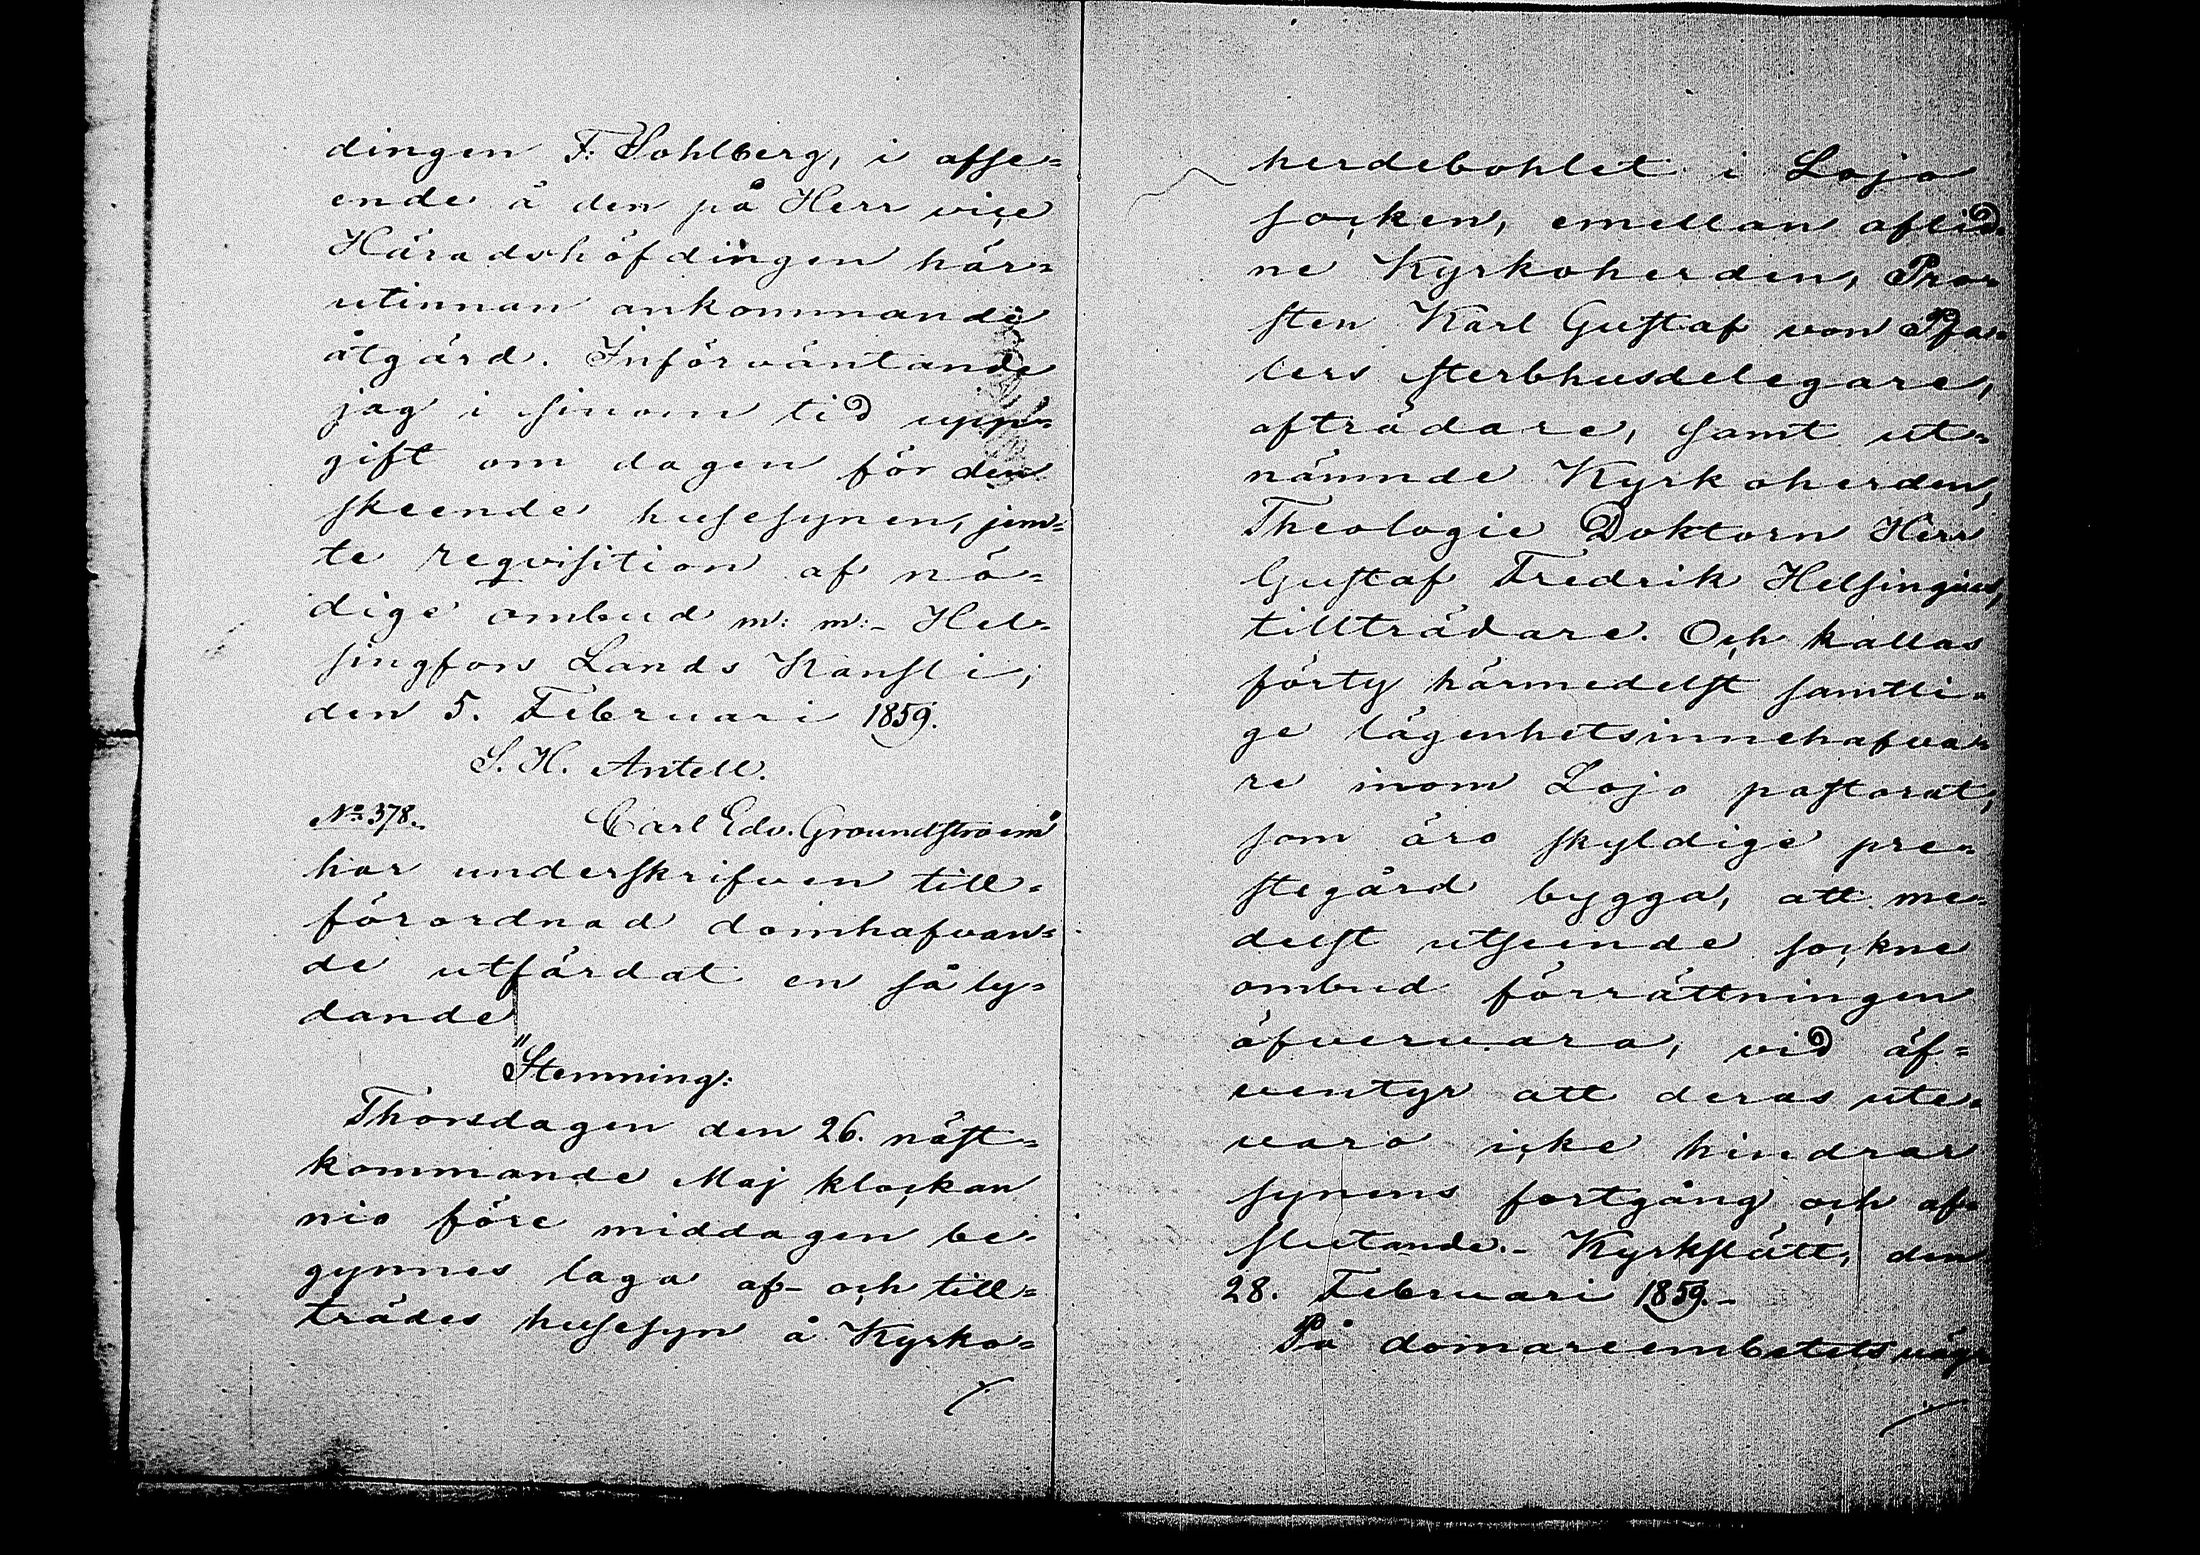 dingen F. Sohlberg, i afse=
ende å den på Herr vice
Häradshöfdingen här=
utinnan ankommande
åtgärd. Införväntande
jag i sinom tid upp=
gift om dagen för den
skeende husesynen, jem=
te reqvisition af nö=
dige ombud m: m:- Hel=
singfors Lands Kansli,
den 5. Februari 1859.
S. H. Antell.
No 378. Carl Edv. Groundstroem"
har underskrifven till=
förordnad domhafvan=
de utfärdat en så ly=
dande
"Stemning:
Thorsdagen den 26. näst=
kommande Maj klockan
nio före middagen be=
gynnes laga af- och till=
trädes husesyn å Kyrko=
herdebohlet i Lojo
socken, emellan aflid=
ne Kyrkoherden, Pro=
sten Karl Gustaf von
lers sterbhusdelegare,
afträdare, samt ut=
nämnde Kyrkoherden,
Theologie Doktorn Herr
Gustaf Fredrik Helsingius,
tillträdare. Och kallas
förty härmedelst samtli=
ge lägenhetsinnehafva=
re inom Lojo pastorat,
som äro skyldige pre=
stegård bygga, att me=
delst utseende sockne
ombud förrättningen
öfvervara, vid äf=
ventyr att deras ute=
varo icke hindrar
synens fortgång och af=
slutande.- Kyrkslätt, den
28. Februari 1859.-
På domareembetets vägn